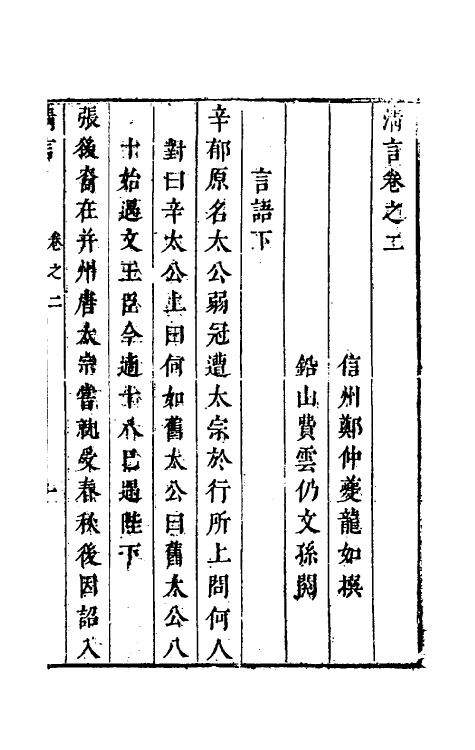 清言卷之二
信州鄭仲夔龍如撰
鉛山費雲仍文孫閱
言語下
辛郁原名太公弱冠遭太宗於行所上問何人
對曰辛太公上曰何如舊太公曰舊太公八
十始遇文王臣今適十八已遇陛下
張後裔在并州唐太宗嘗就受春秋後因詔入
清言
卷之二
一